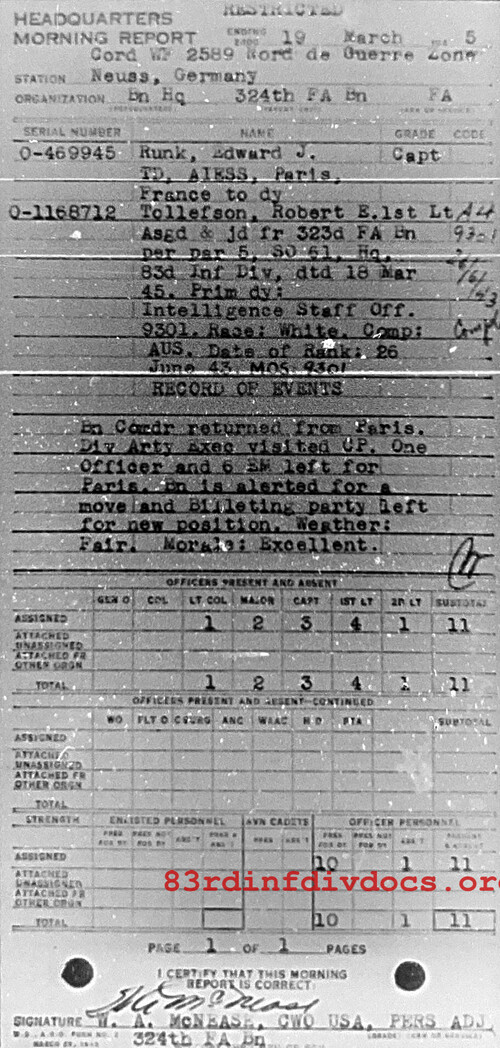 RESTRICTED
HEADQUARTERS
MORNING REPORT ENDING 19 March 5
Cord WF 2589 Nord de Guerre Zone
STATION Neuss, Germany
ORGANIZATION Bn Hq 324th FA Bn FA
SERIAL NUMBER NAME GRADE CODE
O-469945 Runk, Edward J. Capt
TD, AIESS, Paris,
France to dy
O-1168712 Tollefson, Robert E. 1st Lt
Asgd & jd fr 323d FA Bn 9301
per par 5, SO 61, Hq,
83d Inf Div, dtd 18 Mar
45. Prim dy:
Intelligence Staff Off.
9301. Race: White. Comp:
AUS. Date of Rank: 26
June 43. MOS: 9301
RECORD OF EVENTS
Bn Comdr returned from Paris.
Div Arty Exec visited CP. One
Officer and 6 EM left for
Paris. Bn is alerted for a
move and Billeting party left
for new position. Weather:
Fair. Morale: Excellent.
OFFICERS PRESENT AND ABSENT
GEN O COL LT COL MAJOR CAPT 1ST LT 2D LT SUBTOTAL
ASSIGNED 1 2 3 4 1 11
ATTACHED
UNASSIGNED
ATTACHED FR
OTHER ORGN
TOTAL 1 2 3 4 1 11
OFFICERS PRESENT AND ABSENT-CONTINUED
WO FLT O ANC WAAC H D PTA SUBTOTAL
ASSIGNED
ATTACHED
UNASSIGNED
ATTACHED FR
OTHER ORGN
TOTAL
STRENGTH ENLISTED PERSONNEL AVN CADETS OFFICER PERSONNEL
ASSIGNED 10 1 11
ATTACHED
UNASSIGNED
ATTACHED FR
OTHER ORGN
83rdinfdivdocs.org
TOTAL 10 1 11
PAGE 1 OF 1 PAGES
I CERTIFY THAT THIS MORNING
REPORT IS CORRECT:
SIGNATURE W. A. McNEASE, CWO USA, PERS ADJ
324th FA Bn